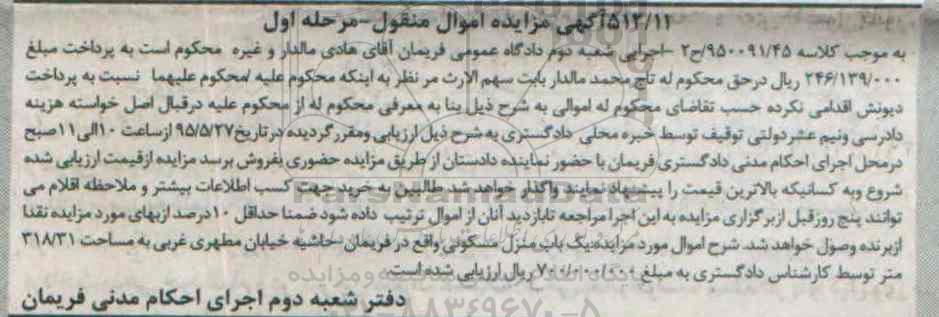 ۵۱۲/۱۱آگهی مزایده اموال منقول-مرحله اول
به موجب کلاسه ۹۵۰۰۹۱/۴۵/ح۲ -اجرایی شعبه دوم دادگاه عمومی فریمان آقای هادی مالدار و غیره محکوم است به پرداخت مبلغ
۲۴۶/۱۳۹/۰۰۰ ریال درحق محکوم له تاج محمد مالدار بابت سهم الارث مر نظر به اینکه محکوم علیه /محکوم علیهما نسبت به پرداخت
دیونش اقدامی نکرده حسب تقاضای محکوم له اموالی به شرح ذیل بنا به معرفی محکوم له از محکوم علیه درقبال اصل خواسته هزینه
دادرسی ونیم عشردولتی توقیف توسط خبره محلی دادگستری به شرح ذیل ارزیابی ومقررگردیده درتاریخ۹۵/۵/۲۷ ازساعت ۱۰الی۱۱صبح
درمحل اجرای احکام مدنی دادگستری فریمان با حضور نماینده دادستان از طریق مزایده حضوری بفروش برسد مزایده ازقیمت ارزیابی شده
شروع وبه کسانیکه بالاترین قیمت را پیشنهاد نمایند واگذار خواهد شد طالبین به خرید جهت کسب اطلاعات بیشتر و ملاحظه اقلام می
توانند پنج روزقبل ازبرگزاری مزایده به این اجرا مراجعه تابازدید آنان از اموال ترتیب داده شود ضمنا حداقل ۱۰درصد ازبهای مورد مزایده نقدا
ازبرنده وصول خواهد شد. شرح اموال مورد مزایده:یک باب منزل مسکونی واقع در فریمان-حاشیه خیابان مطهری غربی به مساحت ۳۱۸/۳۱
متر توسط کارشناس دادگستری به مبلغ ۷۰۰/۰۰۰/۰۰۰ ریال ارزیابی شده است.
دفتر شعبه دوم اجرای احکام مدنی فریمان
ParsNamadData
۰۲۱-۸۸۳۴۹۶۷۰-۵